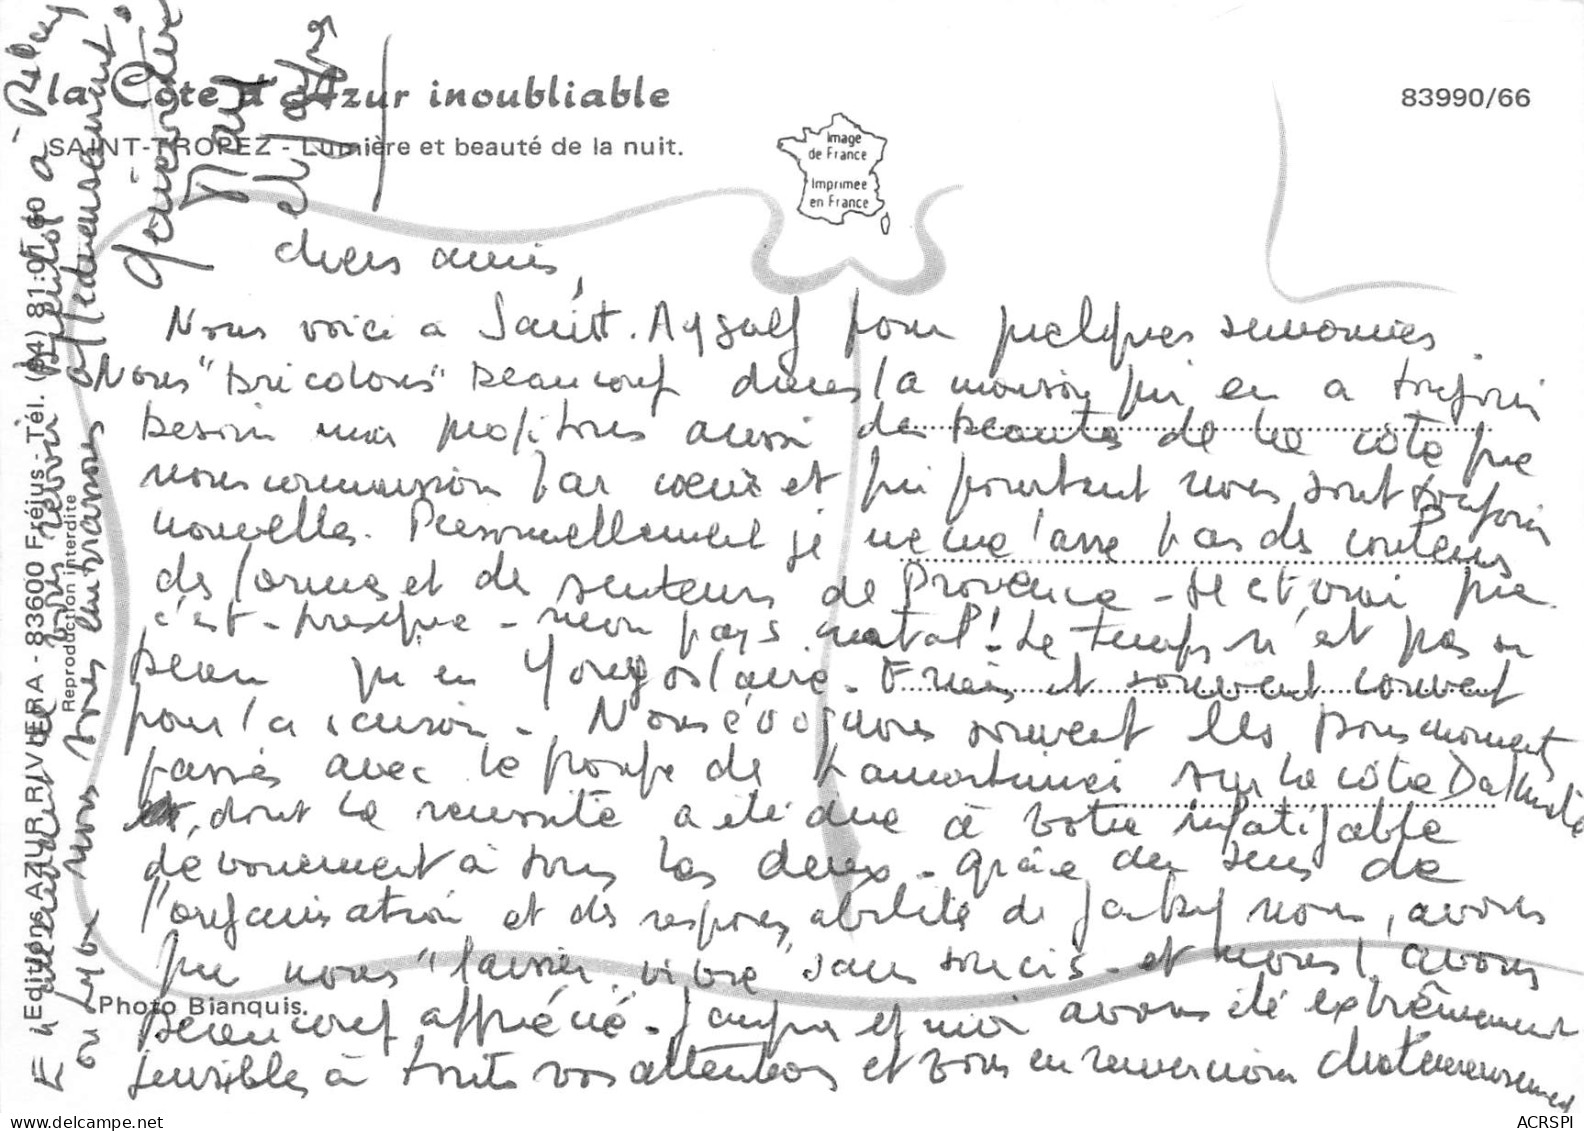 la Côte d'Azur inoubliable
83990/66
SAINT-TROPEZ - Lumière et beauté de la nuit.
Image
de France
Imprimée
en France
chers amis,
Nous voici à Saint.Aygulf pour quelques semaines.
Nous "bricolons" beaucoup dans la maison qui en a toujours
besoin mais profitons aussi des beautés de la côte que
nous connaissons par coeur et qui pourtant nous sont toujours
nouvelles. Personnellement je ne me lasse pas des couleurs
des formes et des senteurs de Provence - Il est vrai que
c'est - presque - mon pays natal! Le temps n'est pas si
beau qu'en Yougoslavie - Frais et souvent couvert
pour la saison - Nous évoquons souvent les bons moments
passés avec le groupe de sur la côte Dalmate
, dont la réussite a été due à votre infatigable
dévouement à tous les deux - grâce au sens de
l'organisation et des responsabilités de Jacky nous, avons
pu nous "laisser vivre" sans soucis - et nous l'avons
beaucoup apprécié - et moi avons été extrêmement
sensibles à toutes vos attentions et vous en remercions chaleureusement
En attendant de vous revoir bientôt à
ou nous vous embrassons affectueusement.
Geneviève
et
Editions AZUR RIVIERA - 83600 Fréjus - Tél. (94) 81:01.60
Reproduction interdite
Photo Bianquis.
ACRSPI